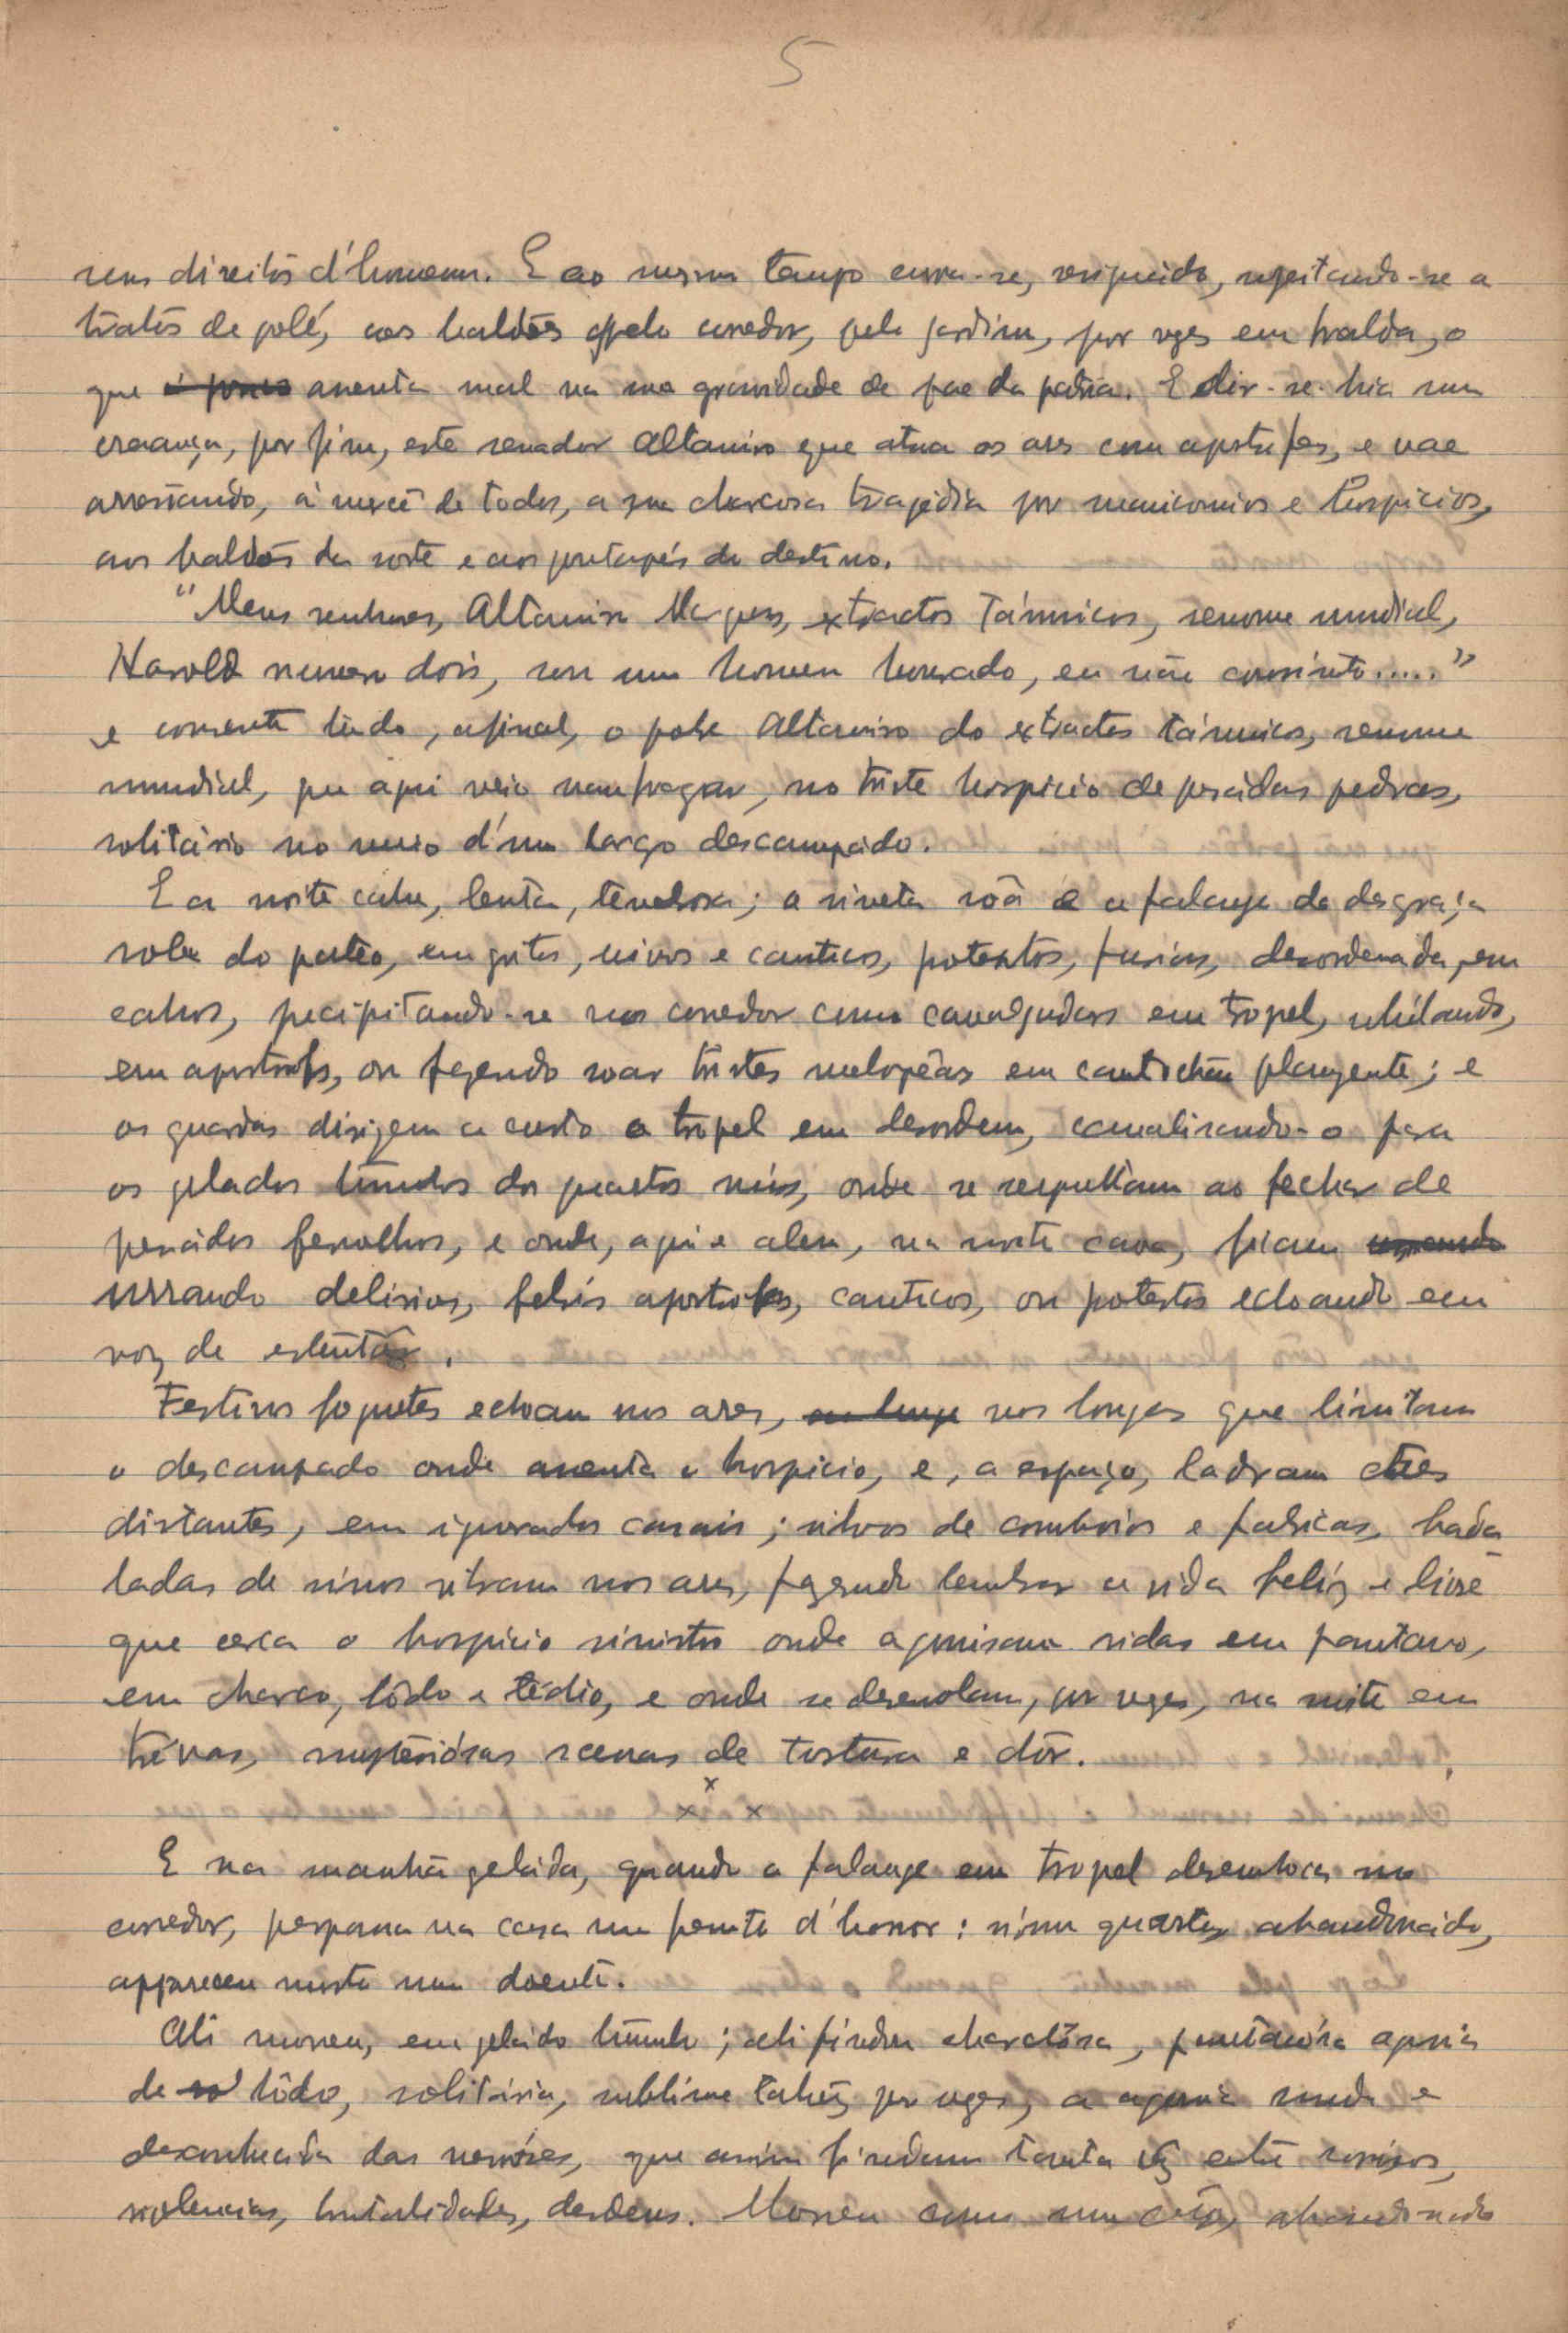 5
seus direitos d'homem. E ao mesmo tempo curva-se, resignado, sujeitando-se a
tratos de polé, aos baldões pelo corredor, pelo jardim, por vezes em fralda, o
que assenta mal na sua gravidade de pae da patria. E dir-se-hia uma
creança, por fim, este senador Altamiro que atroa os ares com apostrofes, e vae
arrastando, à mercê de todos, a sua charcosa tragédia por manicomios e hospicios,
aos baldões da sorte e aos pontapés do destino.
"Meus senhores, Altamiro Marques, extractos tánnicos, renome mundial,
Harold numero dois, sou um homem honrado, eu não consinto....."
e consente tudo, afinal, o pobre Altamiro do extractos tánnicos, renome
mundial, que aqui veio naufragar, no triste hospicio de pesadas pedras,
solitário no meio d'um largo descampado.
E a noite cahe, lenta, tenebrosa; a sineta sôa e a falange da desgraça
sobe do pateo, em gritos, uivos e canticos, protestos, furias, desordenada, em
cahos, precipitando-se nos corredor como cavalgadas em tropel, ululando,
em apostrofes, ou fazendo soar tristes melopêas em cantochão plangente; e
os guardas dirigem a custo o tropel em desordem, canalisando-o para
os gelados tumulos dos quartos nús, onde se sepultam ao fechar de
pesados ferrolhos, e onde, aqui e alem, na noite cava, ficam
urrando delirios, febris apostrofes, canticos, ou protestos echoando em
voz de estentor.
Festivos foguetes echoam nos ares, nos longes que limitam
o descampado onde assenta o hospicio, e, a espaço, ladram cães
distantes, em ignorados casais; silvos de comboios e fabricas, bada
ladas de sinos vibram nos ares, fazendo lembrar a vida feliz e livre
que cerca o hospicio sinistro onde agonisam vidas em pantano,
em charco, lôdo e tédio, e onde se desenrolam, por vezes, na noite em
trévas, mysteriósas scenas de tortura e dôr.
x
x x
E na manhã gelada, quando a falange em tropel desemboca no
corredor, perpassa na casa um fremito d'horror: n'um quarto, abandonado,
appareceu morto um doente.
Ali morreu, em gelado tumulo; ali findou charcósa, pantanósa agonia
de lôdo, solitária, sublime talvez por vezes, a agonia muda e
desconhecida das nevróses, que assim findam tanta vez entre sorrisos,
violencias, brutalidades, desdens. Morreu como um cão, abandonado